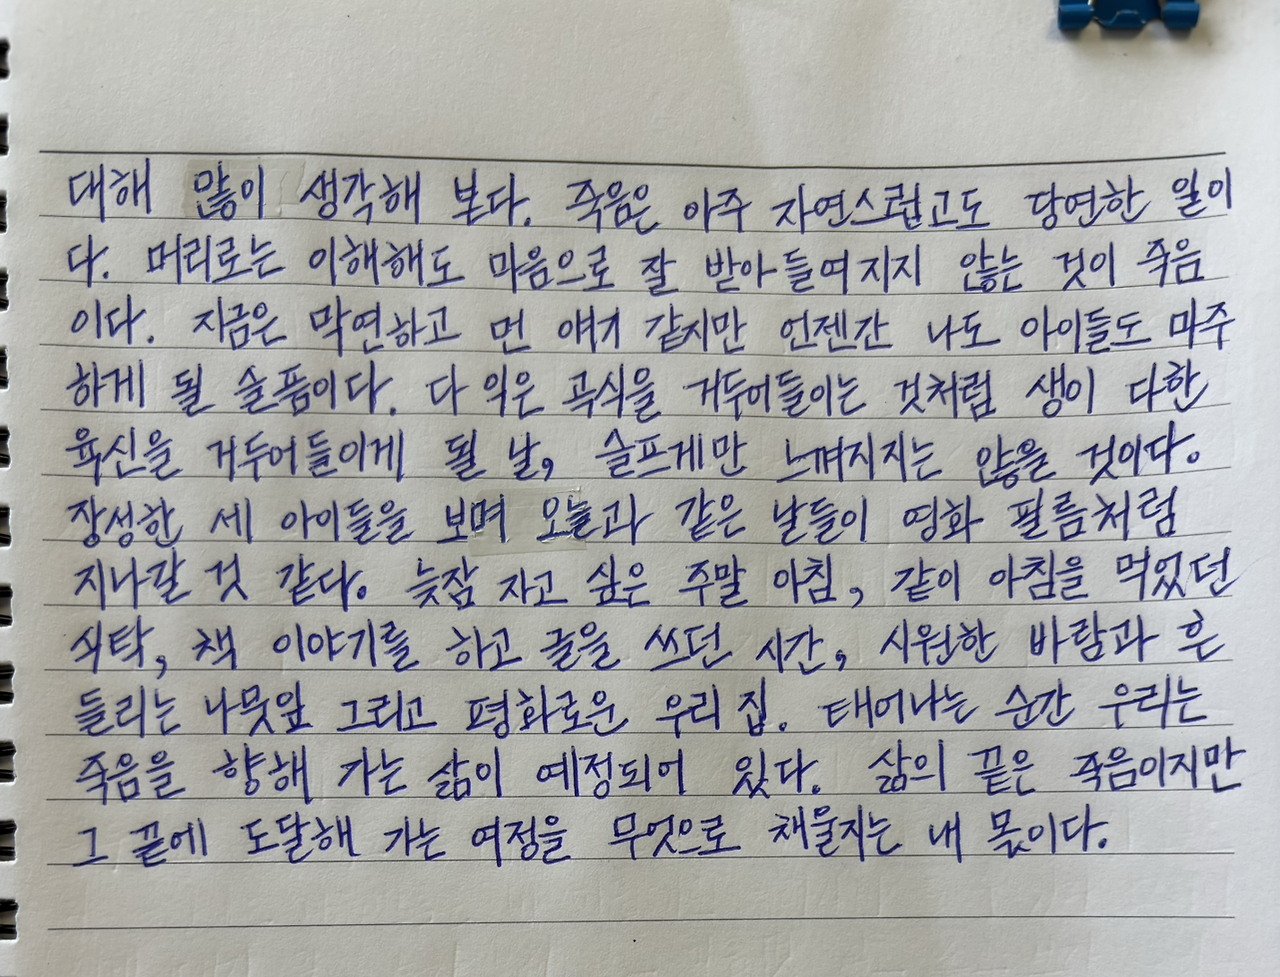 대해 많이 생각해 본다. 죽음은 아주 자연스럽고도 당연한 일이
다. 머리로는 이해해도 마음으로 잘 받아들여지지 않는 것이 죽음
이다. 지금은 막연하고 먼 얘기 같지만 언젠간 나도 아이들도 마주
하게 될 슬픔이다. 다 익은 곡식을 거두어들이는 것처럼 생이 다한
육신을 거두어들이게 될 날, 슬프게만 느껴지지는 않을 것이다.
장성한 세 아이들을 보며 오늘과 같은 날들이 영화 필름처럼
지나갈 것 같다. 늦잠 자고 싶은 주말 아침, 같이 아침을 먹었던
식탁, 책 이야기를 하고 글을 쓰던 시간, 시원한 바람과 흔
들리는 나뭇잎 그리고 평화로운 우리 집. 태어나는 순간 우리는
죽음을 향해 가는 삶이 예정되어 있다. 삶의 끝은 죽음이지만
그 끝에 도달해 가는 여정을 무엇으로 채울지는 내 몫이다.